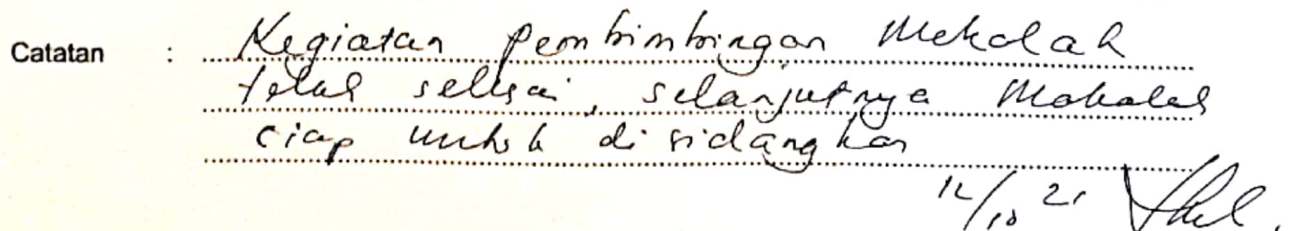 Catatan : Kegiatan pembimbingan Makalah
telah selesai, selanjutnya Makalah
siap untuk disidangkan
12/10 21